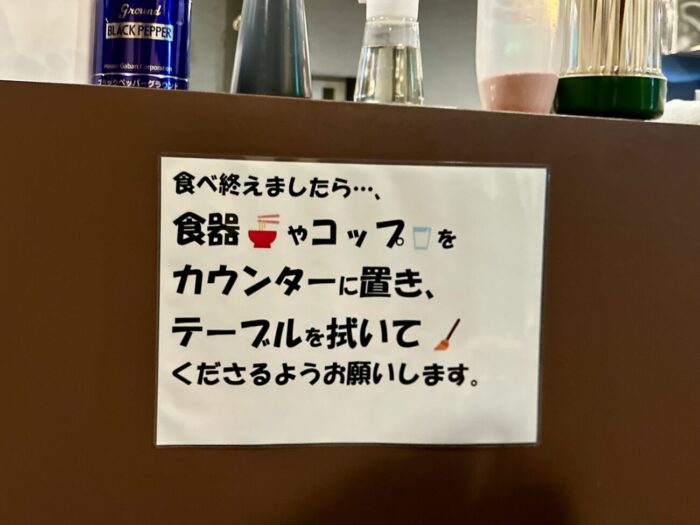 Ground
BLACK PEPPER
House Gaban Corporation
ブラックペッパーグラウンド
食べ終えましたら…、
食器やコップを
カウンターに置き、
テーブルを拭いて
くださるようお願いします。